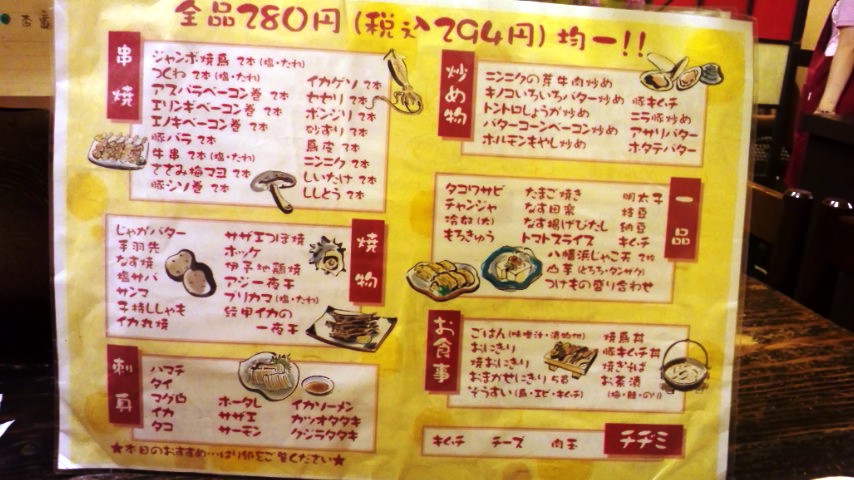 全品280円(税込294円)均一!!
串焼
ジャンボ焼鳥 2本(塩・たれ)
つくね 2本(塩・たれ)
アスパラベーコン巻 2本
エリンギベーコン巻 2本
エノキベーコン巻 2本
豚バラ 2本
牛串 2本(塩・たれ)
ささみ梅マヨ 2本
豚シソ巻 2本
イカゲソ 2本
セセリ 2本
ボンジリ 2本
砂ずり 2本
鳥皮 2本
ニンニク 2本
しいたけ 2本
ししとう 2本
炒め物
ニンニクの芽牛肉炒め
キノコいろいろバター炒め
トントロしょうが炒め
バターコーンベーコン炒め
ホルモンもやし炒め
豚キムチ
ニラ豚炒め
アサリバター
ホタテバター
一品
タコワサビ
チャンジャ
冷奴(大)
もろきゅう
たまご焼き
なす田楽
なす揚げびたし
トマトスライス
明太子
枝豆
納豆
キムチ
八幡浜じゃこ天 2枚
山芋(とろろ・タンザク)
つけもの盛り合わせ
焼物
じゃがバター
手羽先
なす焼
塩サバ
サンマ
子持ししゃも
イカ丸焼
サザエつぼ焼
ホッケ
伊予地鶏焼
アジ一夜干
ブリカマ(塩・たれ)
紋甲イカの
一夜干
刺身
ハマチ
タイ
マグロ
イカ
タコ
ホータレ
サザエ
サーモン
イカソーメン
カツオタタキ
クジラタタキ
お食事
ごはん(味噌汁・漬物付)
おにぎり
焼おにぎり
おまかせにぎり 5貫
ぞうすい(鳥・エビ・キムチ)
焼鳥丼
豚キムチ丼
焼きそば
お茶漬
(梅・鮭・のり)
チヂミ
キムチ チーズ 肉玉
★本日のおすすめ…はり紙をご覧ください★